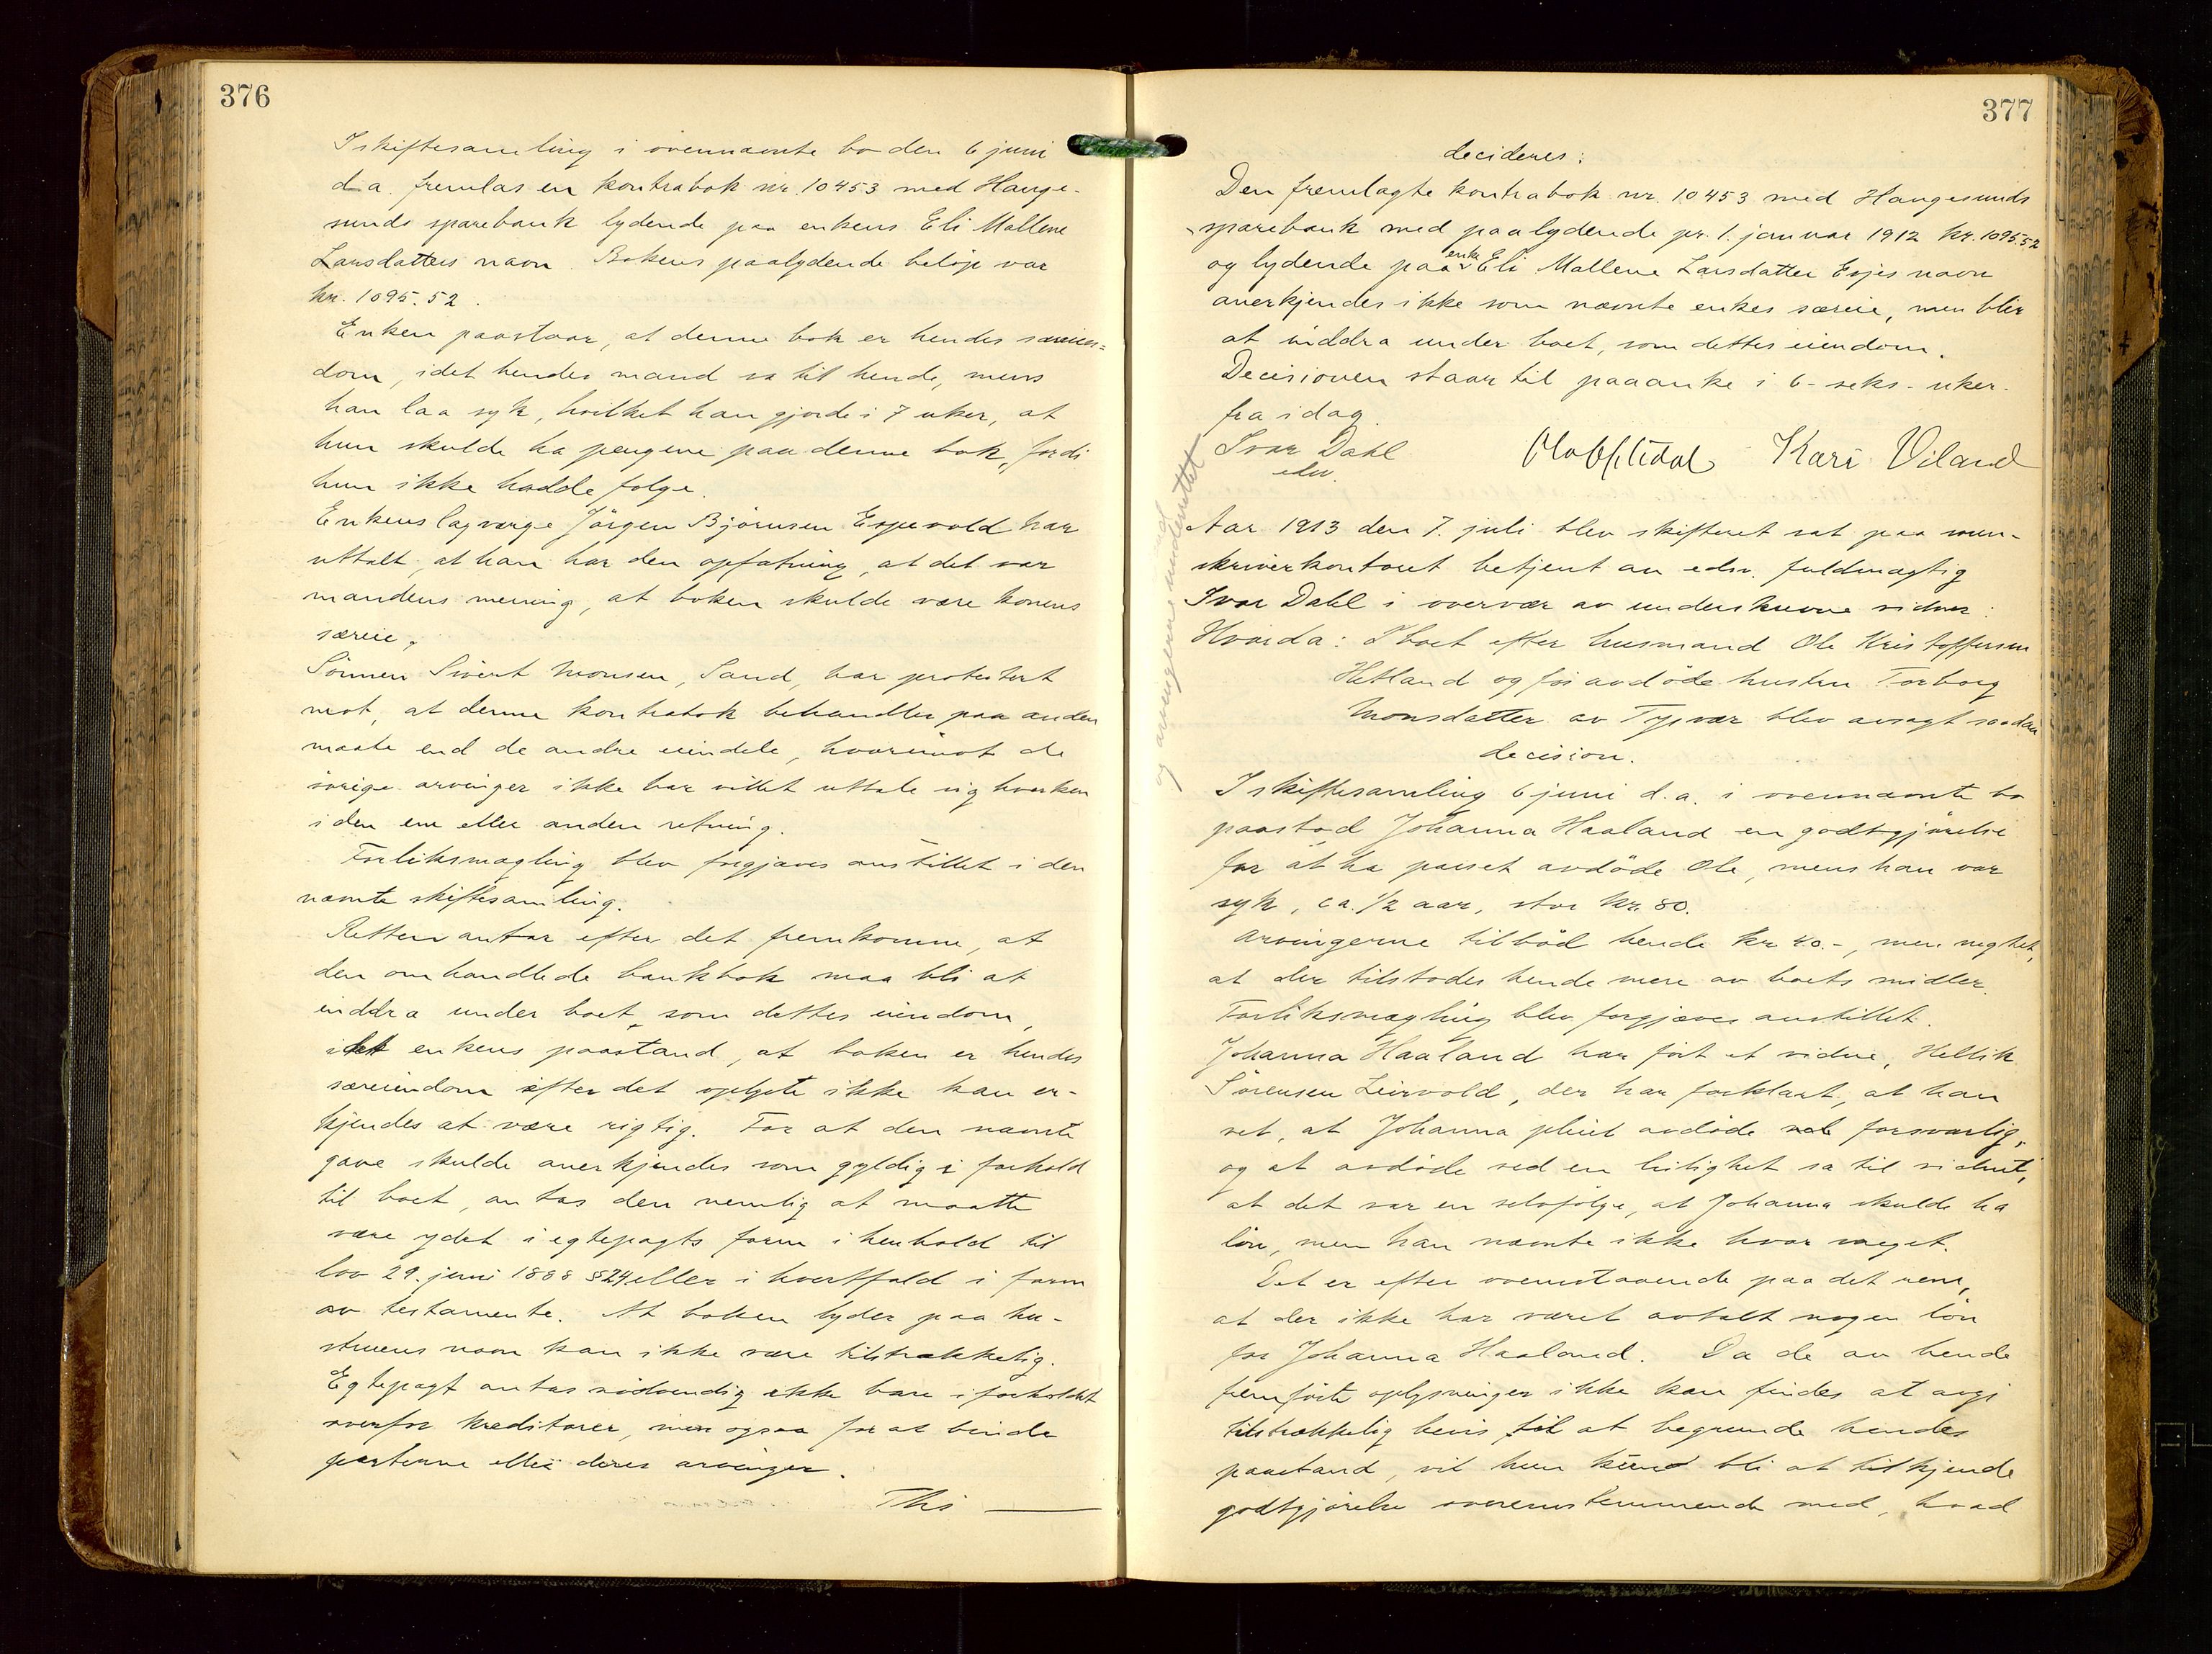 376
I skiftesamling i ovennævnte bo den 6 juni
d.a. fremlas en kontrabok nr. 10453 med Hauge-
sunds sparebank lydende paa enkens Eli Mallene
Larsdatters navn. Bokens paalydende beløp var
kr. 1095.52.
Enken paastaar, at denne bok er hendes særeien=
dom, idet hendes mand sa til hende, mens
han laa syk, hvilket han gjorde i 7 uker, at
hun skulde ha pengene paa denne bok, fordi
hun ikke hadde følge.
Enkens lagværge Jørgen Bjørnsen Espevold har
uttalt, at han har den opfatning, at det var
mandens mening, at boken skulde være konens
særeie.
Sønnen Sivert Monsen, Sand, har protestert
mot, at denne kontrabok behandles paa anden
maate end de andre eiendele, hvorimot de
øvrige arvinger ikke har villet uttale sig hverken
i den ene eller anden retning.
Forliksmægling blev forgjæves anstillet i den
nævnte skiftesamling.
Retten antar efter det fremkomne, at
den omhandlede bankbok maa bli at
inddra under boet, som dettes eiendom,
idet enkens paastand, at boken er hendes
særeiendom efter det oplyste ikke kan er-
kjendes at være rigtig. For at den nævnte
gave skulde anerkjendes som gyldig i forhold
til boet, antas den nemlig at maatte
være ydet i egtepagts form i henhold til
lov 29. juni 1888 §24 eller i hvertfald i form
av testamente. At boken lyder paa hu-
struens navn kan ikke være tilstrækkelig.
Egtepagt antas nødvendig ikke bare i forholdet
overfor kreditorer, men ogsaa for at binde
parterne eller deres arvinger.
Thi
377
decideres:
Den fremlagte kontrabok nr. 10453 med Haugesunds
sparebank med paalydende pr. 1. januar 1912 kr. 1095.52
og lydende paa enke Eli Mallene Larsdatter Evjes navn
anerkjendes ikke som nævnte enkes særeie, men blir
at inddra under boet, som dettes eiendom.
Decisionen staar til paaanke i 6 - seks - uker.
fra idag.
Ivar Dahl
edsv.
Kari Viland
og arvingerne underrettet
Aar 1913 den 7. juli blev skifteret sat paa soren-
skriverkontoret betjent av edsv. fuldmægtig
Ivar Dahl i overvær av underskrevne vidner:
Hvorda: I boet efter husmand Ole Kristoffersen
Hetland og før avdøde hustru Torborg
Monsdatter av Tysvær blev avsagt saadan
decision.
I skiftesamling 6 juni d.a. i ovennævnte bo
paastod Johanna Haaland en godtgjørelse
for at ha passet avdøde Ole, mens han var
syk, ca. 1/2 aar, stor kr. 80.
Arvingerne tilbød hende kr. 40.-, men negtet,
at der tilstodes hende mere av boets midler.
Forliksmægling blev forgjæves anstillet.
Johanna Haaland har ført et vidne, Hellik
Sørensen Leirvold, der har forklart, at han
vet, at Johanna pleiet avdøde forsvarlig,
og at avdøde ved en leilighet sa til vidnet,
at det var en selvfølge, at Johanna skulde ha
løn, men han nævnte ikke hvor meget.
Det er efter ovenstaaende paa det rene,
at der ikke har været avtalt nogen løn
for Johanna Haaland. Da de av hende
fremførte oplysninger ikke kan findes at avgi
tilstrækkelig bevis til at begrunde hendes
paastand, vil hun kund bli at tilkjende
godtgjørelse overensstemmende med, hvad